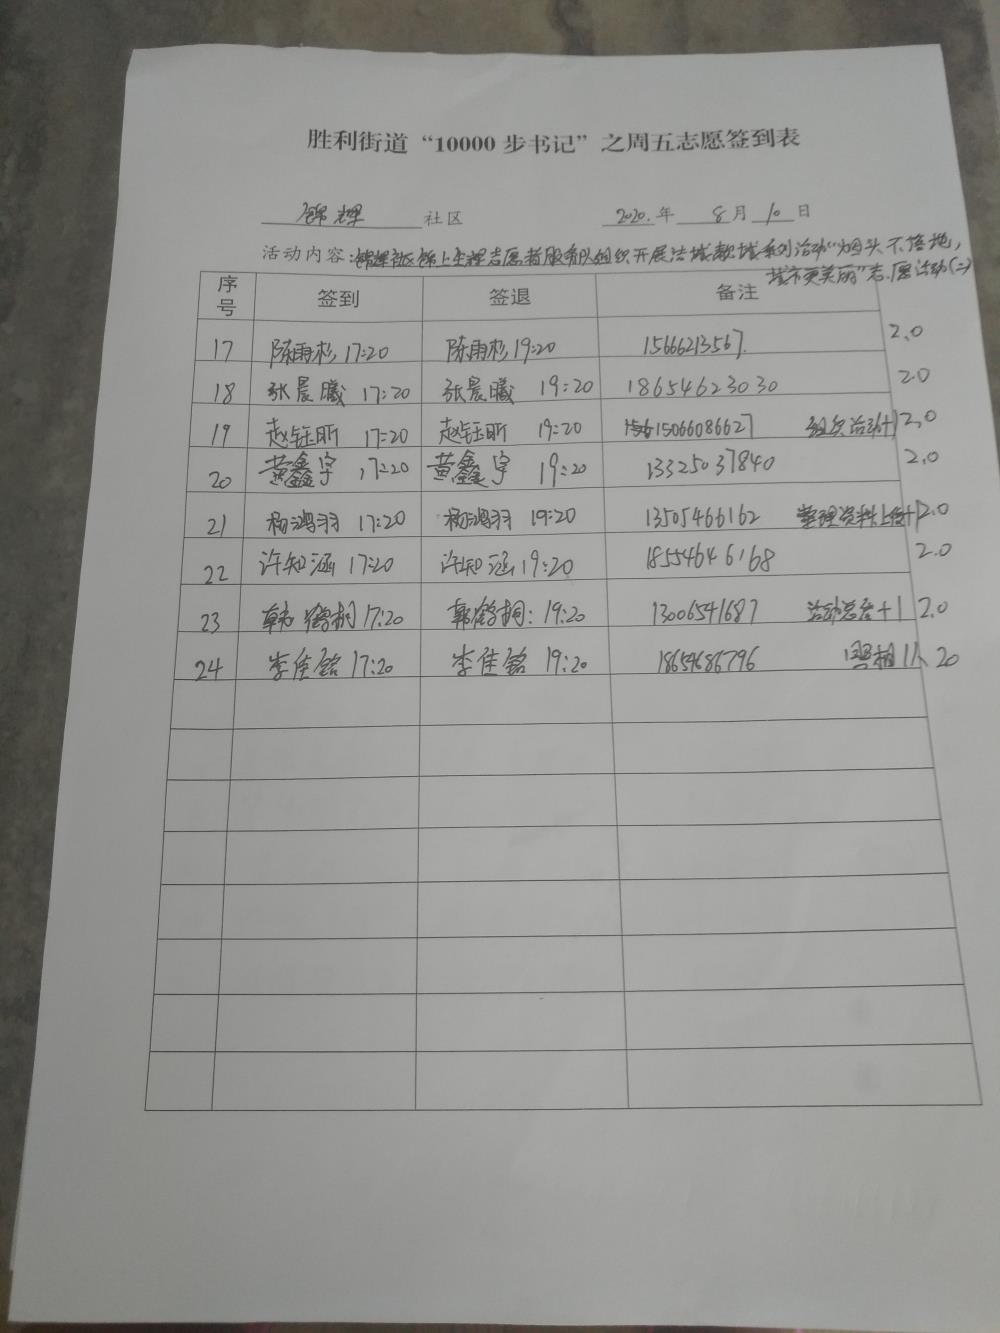 胜利街道“10000步书记”之周五志愿签到表
锦辉 社区 2020.年 8月 10日
活动内容:锦辉社区锦上生辉志愿者服务队组织开展法城献城系列活动“烟头不落地,
城市更美丽”志愿活动(二)
序号 签到 签退 备注
17 陈雨杉 17:20 陈雨杉 19:20 15666213567. 2.0
18 张晨曦 17:20 张晨曦 19:20 18654623030 2.0
19 赵钰昕 17:20 赵钰昕 19:20 15066086627 组织活动+1 2.0
20 黄鑫宇 17:20 黄鑫宇 19:20 13325037840 2.0
21 杨鸿羽 17:20 杨鸿羽 19:20 13505466162 整理资料上传+1 2.0
22 许知涵 17:20 许知涵 19:20 18554646168 2.0
23 韩鹤桐 17:20 韩鹤桐: 19:20 13006541687 活动总结+1 2.0
24 李佳铭 17:20 李佳铭 19:20 18654686796 照相 20